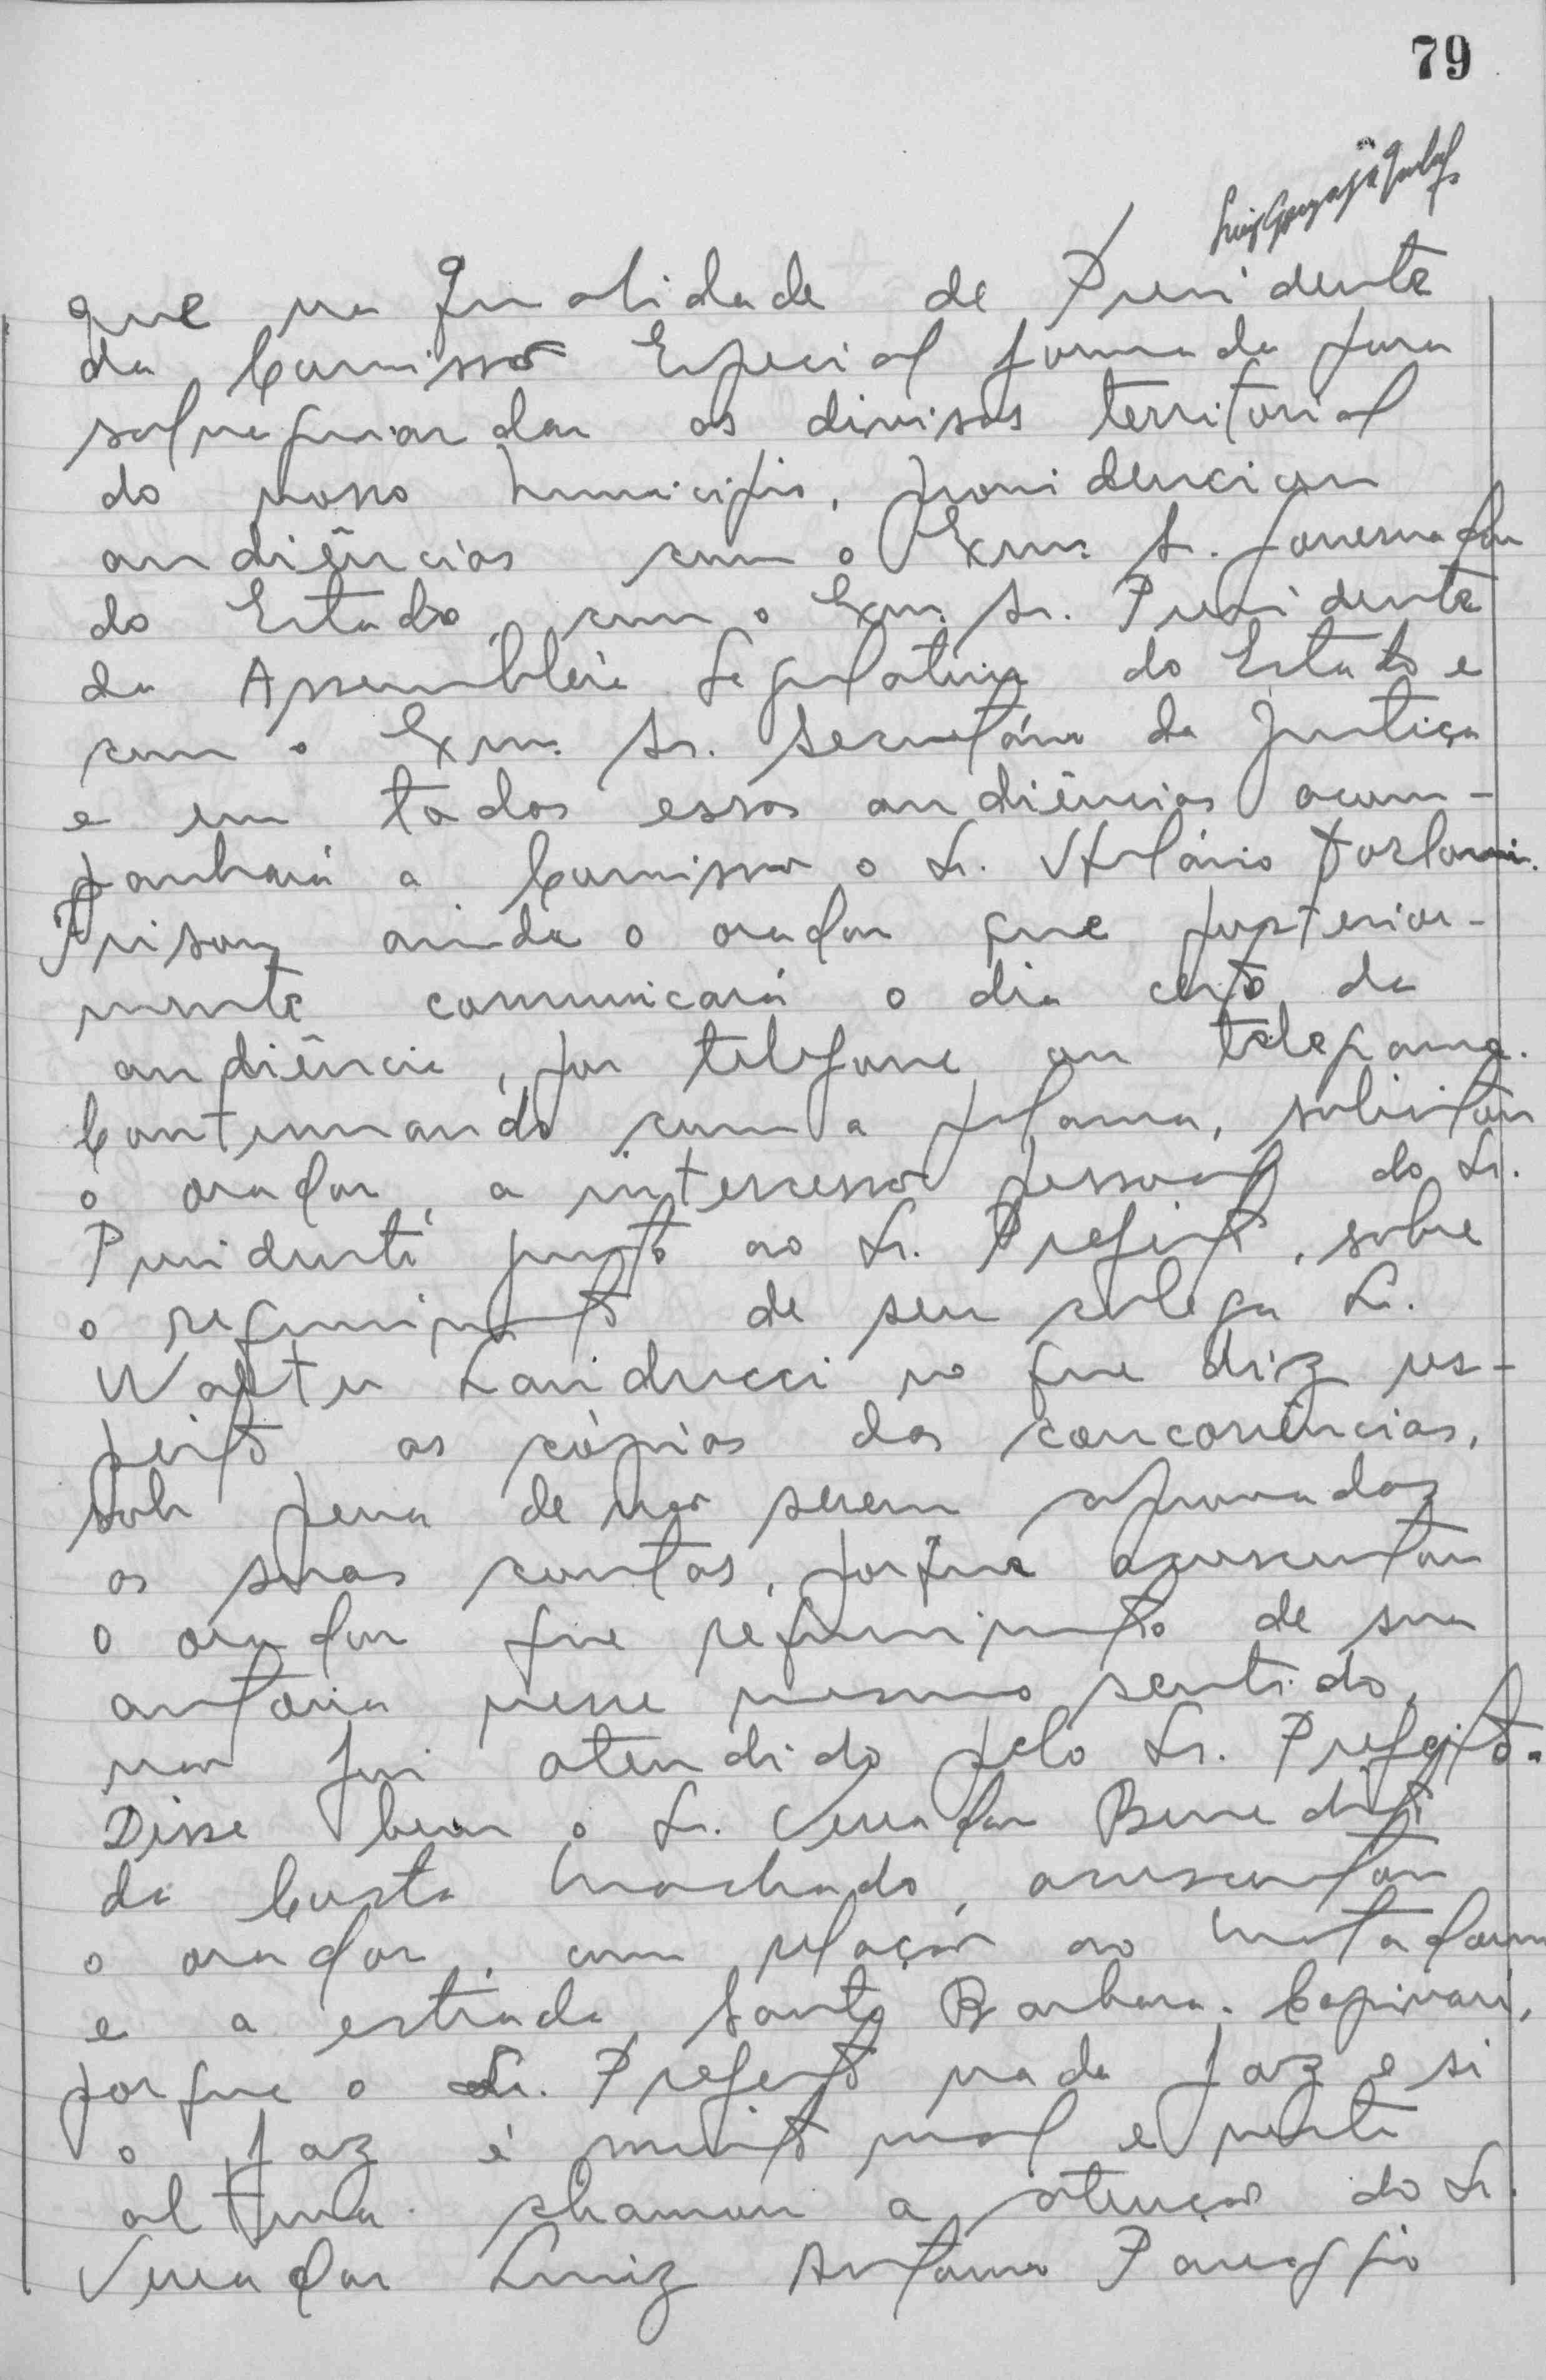 79
que na qualidade de Presidente
da Comissão Especial formada para
salvaguardar as divisas territorial
do nosso município, providenciou
audiências com o Exmo. Sr. Governador
do Estado, com o Exmo. Sr. Presidente
da Assembléia Legislativa do Estado e
com o Exmo. Sr. Secretário da Justiça
e em todas essas audiências acom-
panhará a Comissão o Sr.
Frisou ainda o orador que posterior-
mente comunicará o dia certo da
audiência, por telefone ou telegrama.
Continuando com a palavra, solicitou
o orador, a intercessão pessoal do Sr.
Presidente junto ao Sr. Prefeito, sobre
o requerimento de seu colega Sr.
Walter Landucci no que diz res-
peito as cópias das concorrências,
sob pena de não serem aprovadas
as suas contas, porque acrescentou
o orador que requerimento de sua
autoria nesse mesmo sentido,
não foi atendido pelo Sr. Prefeito.
Disse bem o Sr. Vereador Benedito
da Costa Machado, acrescentou
o orador, com relação ao matadouro
e a estrada Santa Barbara. Capivari,
porque o Sr. Prefeito nada faz e si
o faz é muito mal e nesta
altura chamou a atenção do Sr.
Vereador Luiz Antonio Panaggio